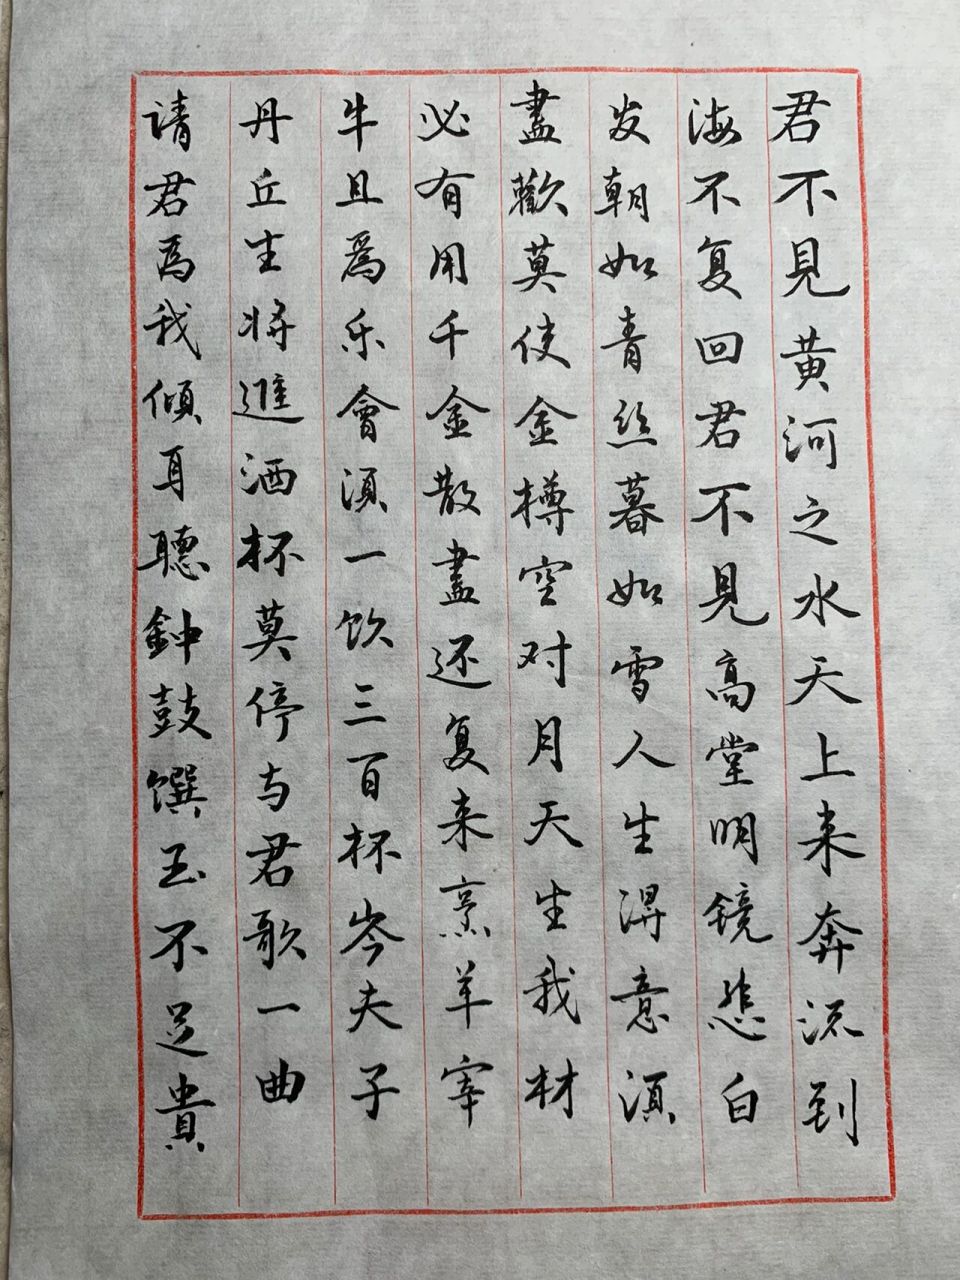 君不見黄河之水天上来奔流到
海不复回君不見高堂明镜悲白
发朝如青丝暮如雪人生得意須
盡歡莫使金樽空对月天生我材
必有用千金散盡还复来烹羊宰
牛且為乐會須一饮三百杯岑夫子
丹丘生将進酒杯莫停与君歌一曲
请君為我傾耳聽鈡鼓馔玉不足貴